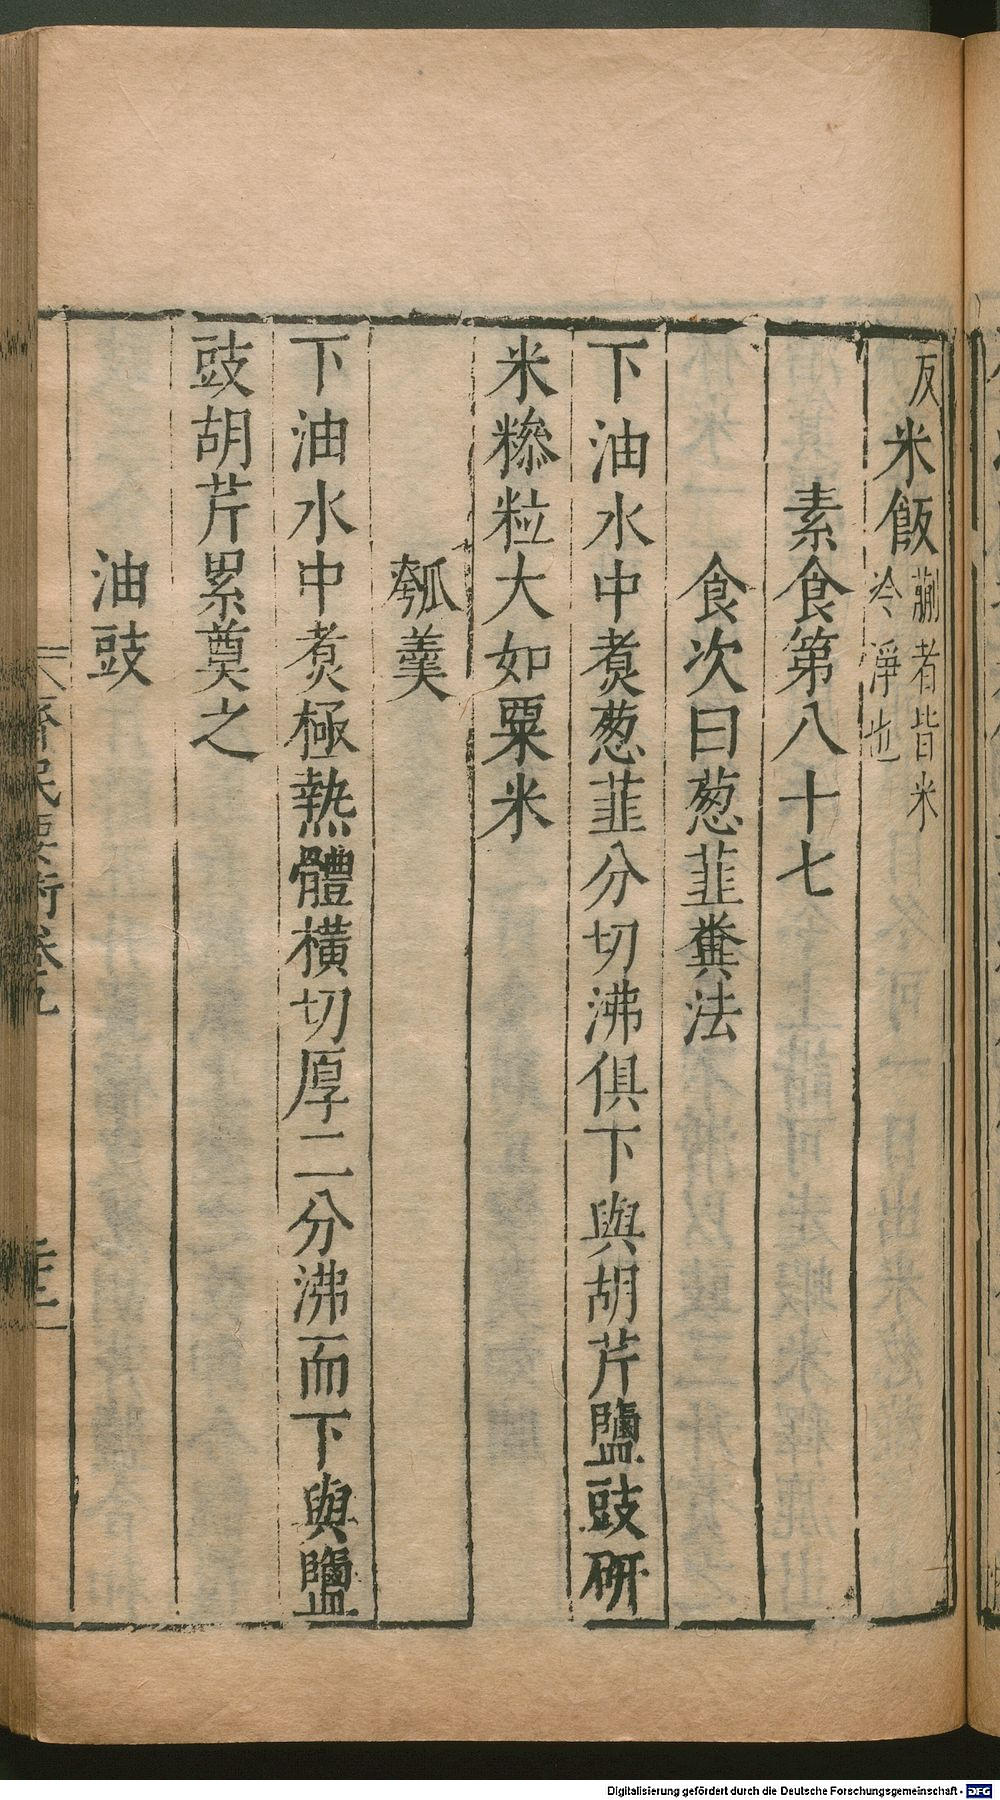 反米飯䉛者皆米冷淨也
素食第八十七
食次曰葱韮糞法
下油水中煮葱韮分切沸俱下與胡芹鹽豉研
米糝粒大如粟米
瓠羹
下油水中煮極熱體橫切厚二分沸而下與鹽
豉胡芹累奠之
油豉
齊民要術卷九
Digitalisierung gefördert durch die Deutsche Forschungsgemeinschaft - DFG